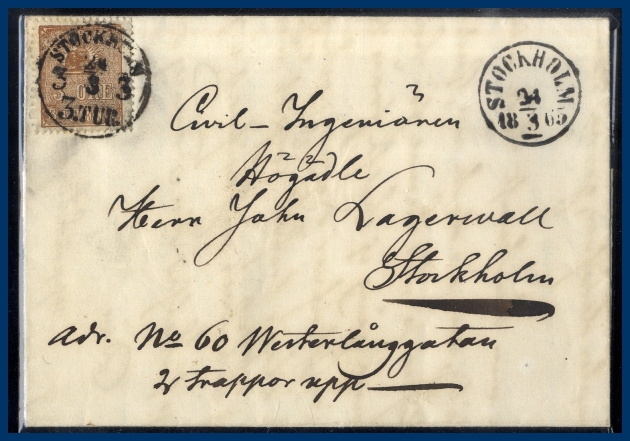 STOCKHOLM
24
3
3
ÖRE
3.TUR.
STOCKHOLM
24
18 3 65
Civil-Ingeniören
Högädle
Herr John Lagerwall
Stockholm
adr. No 60 Westerlånggatan
2 trappor upp